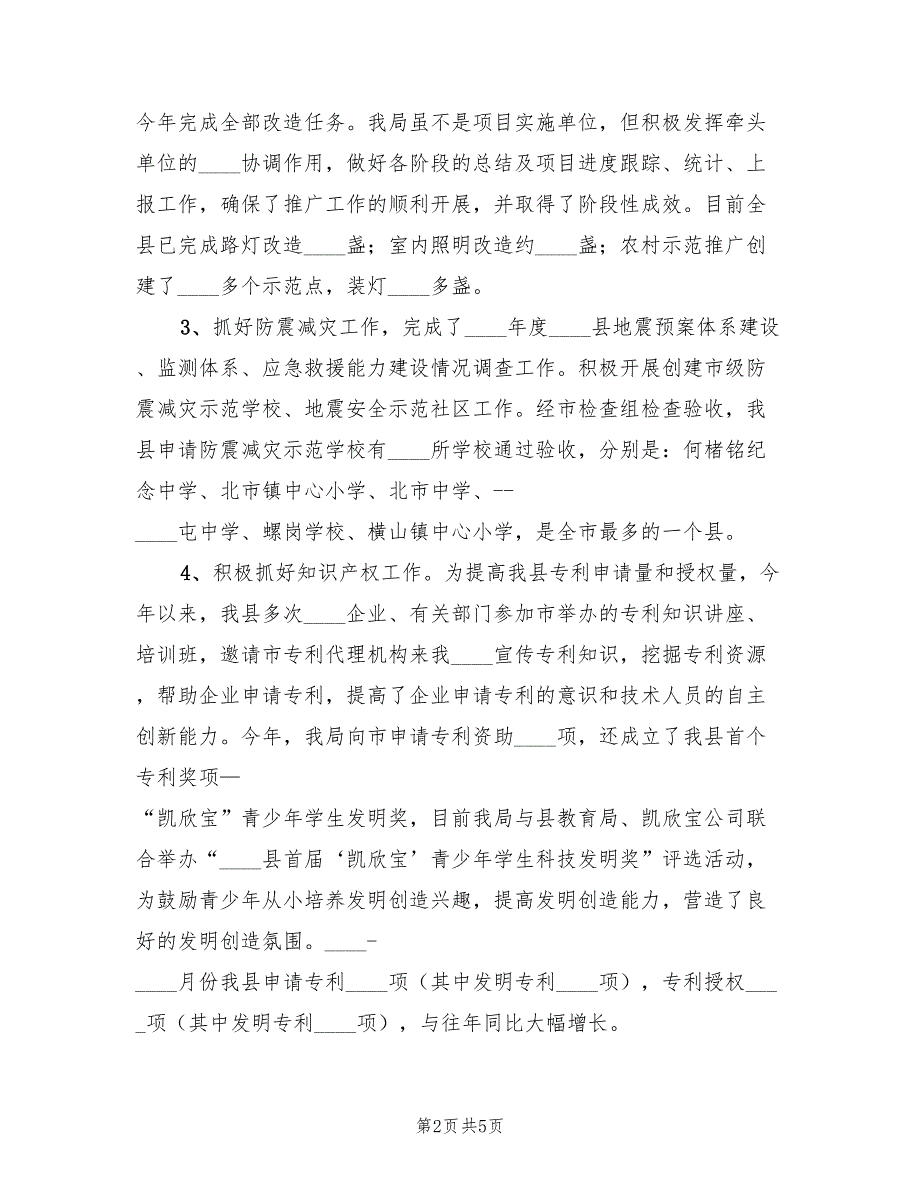 今年完成全部改造任务。我局虽不是项目实施单位，但积极发挥牵头
单位的____协调作用，做好各阶段的总结及项目进度跟踪、统计、上
报工作，确保了推广工作的顺利开展，并取得了阶段性成效。目前全
县已完成路灯改造____盏；室内照明改造约____盏；农村示范推广创
建了____多个示范点，装灯____多盏。
3、抓好防震减灾工作，完成了____年度____县地震预案体系建设
、监测体系、应急救援能力建设情况调查工作。积极开展创建市级防
震减灾示范学校、地震安全示范社区工作。经市检查组检查验收，我
县申请防震减灾示范学校有____所学校通过验收，分别是：何楮铭纪
念中学、北市镇中心小学、北市中学、--
____屯中学、螺岗学校、横山镇中心小学，是全市最多的一个县。
4、积极抓好知识产权工作。为提高我县专利申请量和授权量，今
年以来，我县多次____企业、有关部门参加市举办的专利知识讲座、
培训班，邀请市专利代理机构来我____宣传专利知识，挖掘专利资源
，帮助企业申请专利，提高了企业申请专利的意识和技术人员的自主
创新能力。今年，我局向市申请专利资助____项，还成立了我县首个
专利奖项—
“凯欣宝”青少年学生发明奖，目前我局与县教育局、凯欣宝公司联
合举办“____县首届‘凯欣宝’青少年学生科技发明奖”评选活动，
为鼓励青少年从小培养发明创造兴趣，提高发明创造能力，营造了良
好的发明创造氛围。____-
____月份我县申请专利____项（其中发明专利____项），专利授权___
_项（其中发明专利____项），与往年同比大幅增长。
第2页 共5页